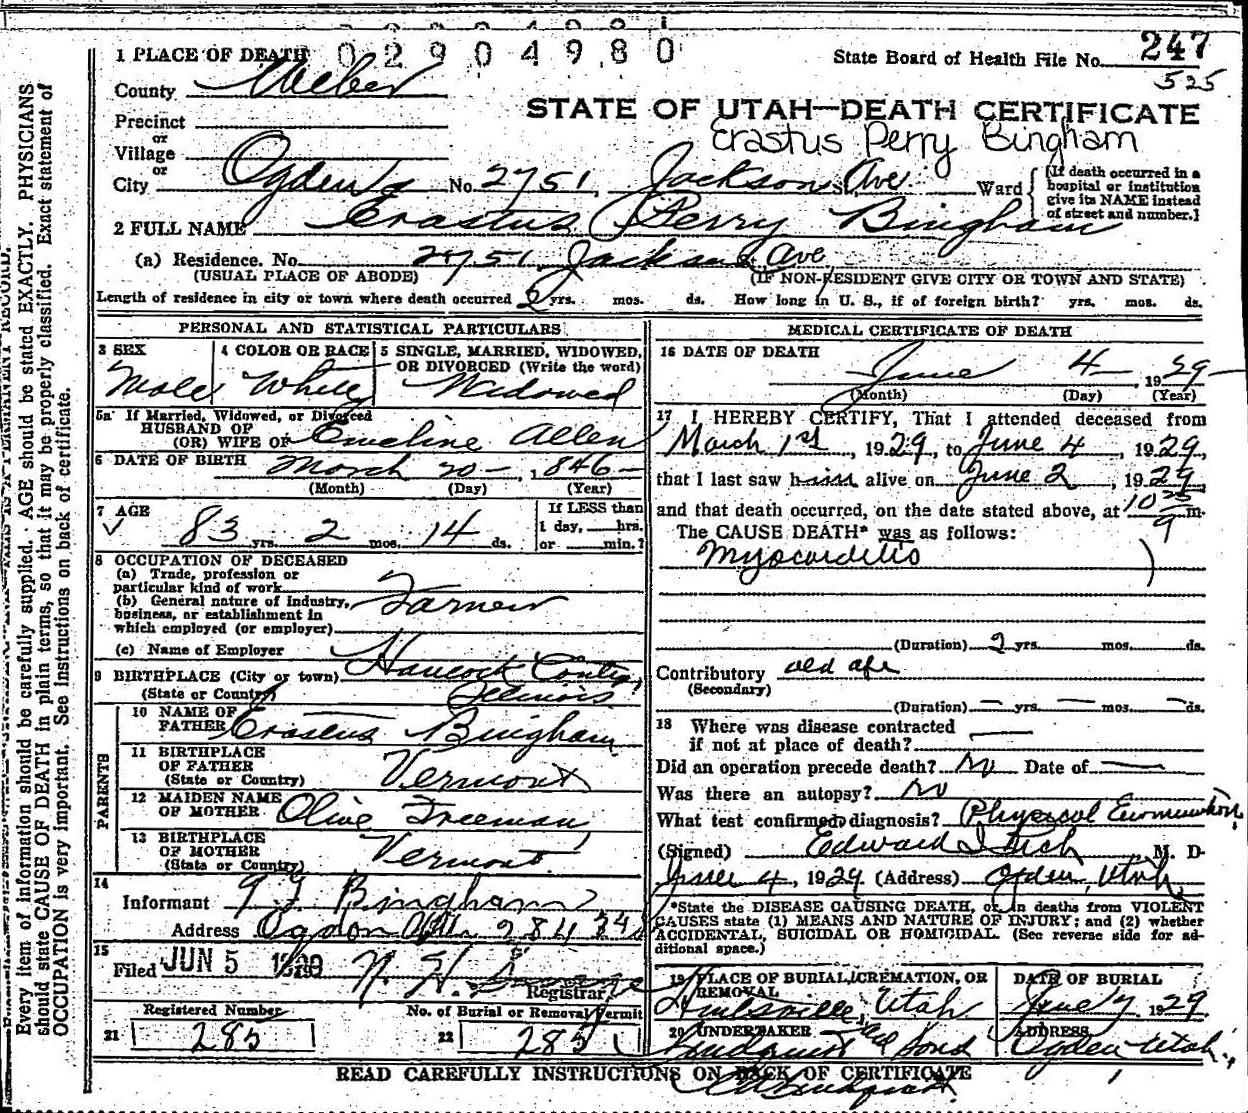 0 2 9 0 4 9 8 0
1 PLACE OF DEATH
State Board of Health File No. 247
525
County Weber
STATE OF UTAH—DEATH CERTIFICATE
Precinct
or
Erastus Perry Bingham
Village
or
City Ogden No. 2751 Jackson St. Ave Ward
[If death occurred in a hospital or institution give its NAME instead of street and number.]
2 FULL NAME Erastus Perry Bingham
(a) Residence. No. 2751 Jackson Ave
(USUAL PLACE OF ABODE) (IF NON-RESIDENT GIVE CITY OR TOWN AND STATE)
Length of residence in city or town where death occurred 2 yrs. mos. ds. How long in U. S., if of foreign birth? yrs. mos. ds.
PERSONAL AND STATISTICAL PARTICULARS
3 SEX Male
4 COLOR OR RACE White
5 SINGLE, MARRIED, WIDOWED, OR DIVORCED (Write the word) Widowed
5a If Married, Widowed, or Divorced
HUSBAND OF
(OR) WIFE OF Emeline Allen
6 DATE OF BIRTH March 20 — , 1846 —
(Month) (Day) (Year)
7 AGE
83 yrs. 2 mos. 14 ds.
If LESS than
1 day, hrs.
or min.?
8 OCCUPATION OF DECEASED
(a) Trade, profession or
particular kind of work
Farmer
(b) General nature of industry,
business, or establishment in
which employed (or employer)
(c) Name of Employer
9 BIRTHPLACE (City or town) Hancock
(State or Country) Illinois
PARENTS
10 NAME OF
FATHER Erastus Bingham
11 BIRTHPLACE
OF FATHER
(State or Country) Vermont
12 MAIDEN NAME
OF MOTHER Olive Freeman
13 BIRTHPLACE
OF MOTHER
(State or Country) Vermont
14
Informant Bingham
Address Ogden 284
15
Filed JUN 5 N. H.
Registrar
Registered Number
21 285
No. of Burial or Removal Permit
22 285
MEDICAL CERTIFICATE OF DEATH
16 DATE OF DEATH
June 4 — , 1929 —
(Month) (Day) (Year)
17 I HEREBY CERTIFY, That I attended deceased from
March 1st , 1929, to June 4 , 1929,
that I last saw him alive on June 2 , 1929
and that death occurred, on the date stated above, at 10 25 m.
The CAUSE DEATH* was as follows:
Myocarditis
(Duration) 2 yrs. mos. ds.
Contributory old age
(Secondary)
(Duration) — yrs. — mos. — ds.
18 Where was disease contracted
if not at place of death? —
Did an operation precede death? No Date of —
Was there an autopsy? No
What test confirmed diagnosis? Physical Examination
(Signed) Edward I Rich M. D.
June 4 , 1929 (Address) Ogden, Utah
*State the DISEASE CAUSING DEATH, or, in deaths from VIOLENT
CAUSES state (1) MEANS AND NATURE OF INJURY; and (2) whether
ACCIDENTAL, SUICIDAL OR HOMICIDAL. (See reverse side for ad-
ditional space.)
19 PLACE OF BURIAL, CREMATION, OR
REMOVAL
Huntsville, Utah
DATE OF BURIAL
June 7 1929
20 UNDERTAKER
Lindquist and Sons
ADDRESS
Ogden Utah
READ CAREFULLY INSTRUCTIONS ON BACK OF CERTIFICATE
Every item of information should be carefully supplied. AGE should be stated EXACTLY. PHYSICIANS
should state CAUSE OF DEATH in plain terms, so that it may be properly classified. Exact statement of
OCCUPATION is very important. See instructions on back of certificate.